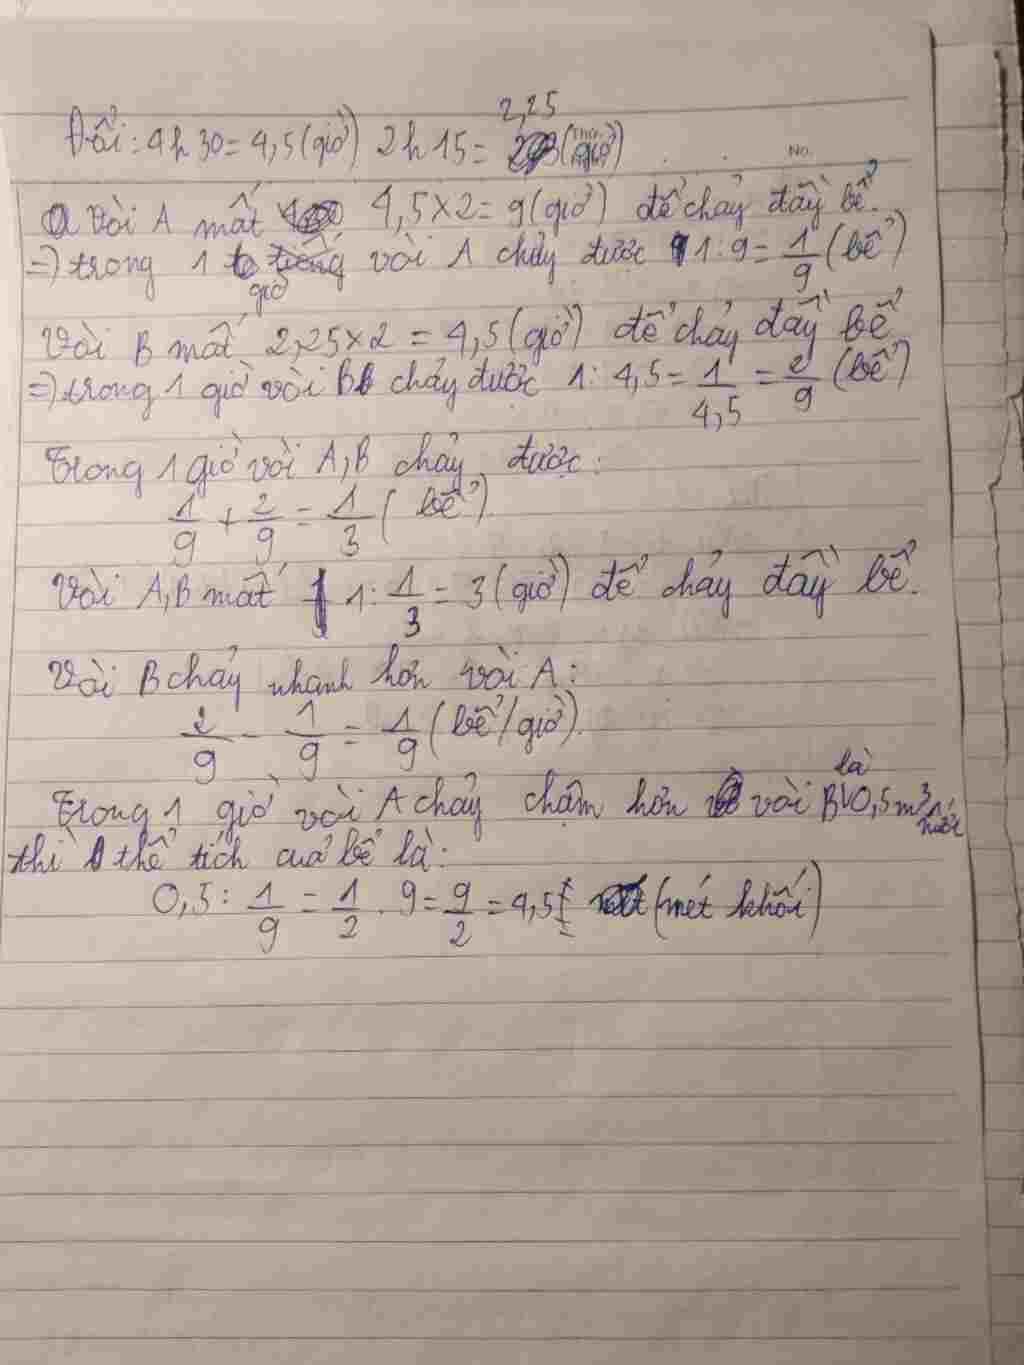 2,25
Đổi: 4h30 = 4,5 (giờ) 2h15 = (giờ)
No.
Vòi A mất 4,5 × 2 = 9 (giờ) để chảy đầy bể.
=> trong 1 vòi A chảy được 1 : 9 = 1/9 (bể)
giờ
Vòi B mất 2,25 × 2 = 4,5 (giờ) để chảy đầy bể
=> trong 1 giờ vòi B chảy được 1 : 4,5 = 1/4,5 = 2/9 (bể)
Trong 1 giờ vòi A, B chảy được:
1/9 + 2/9 = 1/3 (bể)
Vòi A, B mất 1 : 1/3 = 3 (giờ) để chảy đầy bể.
Vòi B chảy nhanh hơn vòi A:
2/9 - 1/9 = 1/9 (bể/giờ).
Trong 1 giờ vòi A chảy chậm hơn vòi B là 0,5m³ nước
thì thể tích của bể là:
0,5 : 1/9 = 1/2 . 9 = 9/2 = 4,5 (mét khối)